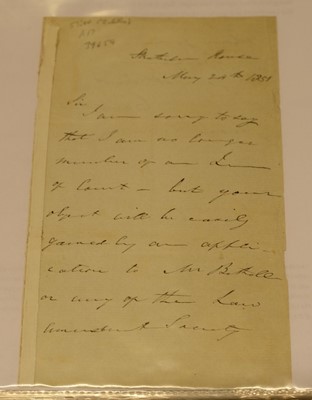 House
May 20th 1851
Sir
I am sorry to say
that I am no longer
member of an Inn
of Court – but your
object will be easily
gained by an appli
cation to Mr Bethell
or any of the Law
Amendmt Society